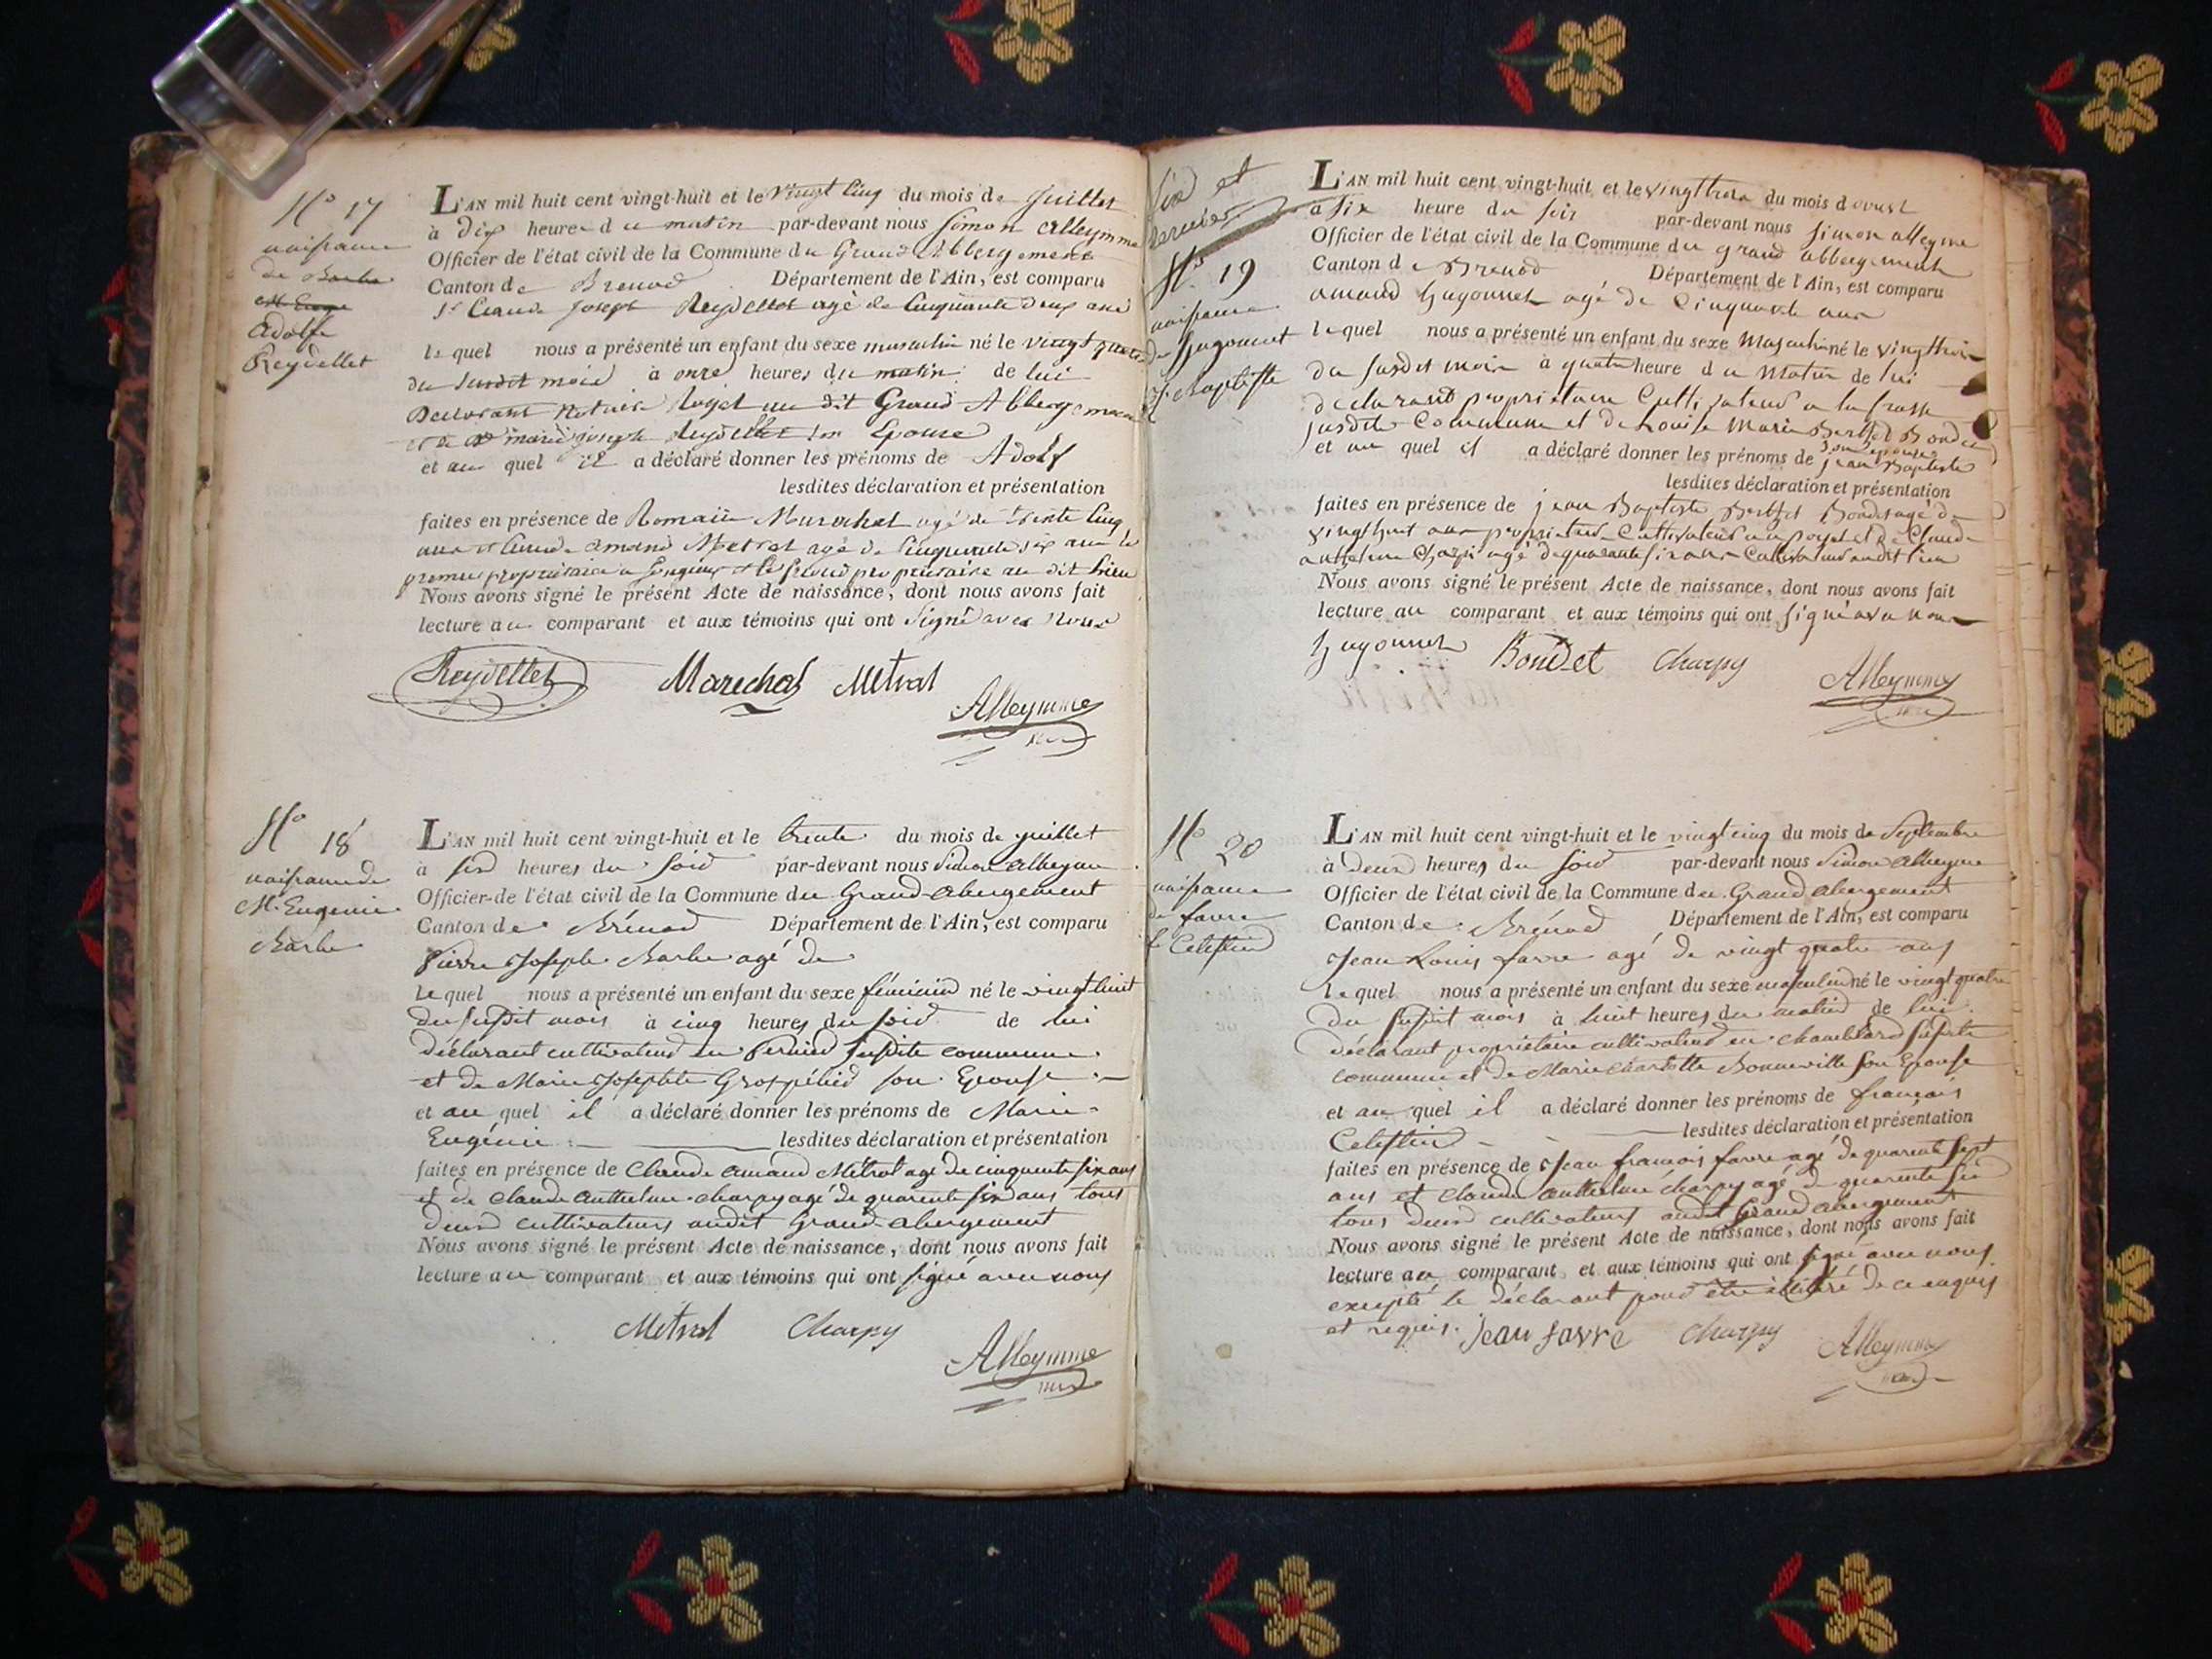 No 17
naissance
de Barbe
M. Eugé
Adolfe
Reydellet
L'AN mil huit cent vingt-huit et le vingt cinq du mois de juillet
à dix heures du matin par-devant nous Simon Alleymme
Officier de l'état civil de la Commune du Grand Abbergement
Canton de Brenod Département de l'Ain, est comparu
Sr Claude Joseph Reydellet agé de Cinquante deux ans
lequel nous a présenté un enfant du sexe masculin né le vingt quatre
du susdit mois à onze heures du matin de lui
Declarant Notaire Royal au dit Grand Abbergement
et de De marie joseph Reydellet son Epouse
et au quel il a déclaré donner les prénoms de Adolf
lesdites déclaration et présentation
faites en présence de Romain Marechal agé de trente cinq
ans et Claude Amand Metral agé de cinquante six ans le
premier propriétaire a Songieu et le second propriétaire au dit lieu
Nous avons signé le présent Acte de naissance, dont nous avons fait
lecture au comparant et aux témoins qui ont signé avec Nous
Reydellet Marechal Metral
Alleymme
No 18
naissance de
M. Eugenie
Barbe
L'AN mil huit cent vingt-huit et le trente du mois de juillet
à six heures du soir par-devant nous Simon Alleyme
Officier de l'état civil de la Commune du Grand-abergement
Canton de Brénod Département de l'Ain, est comparu
Pierre Joseph Barbe agé de
le quel nous a présenté un enfant du sexe féminin né le vingt huit
du susdit mois à cinq heures du soir de lui
déclarant cultivateur en susdite commune
et de Marie Josephte son Epouse
et au quel il a déclaré donner les prénoms de Marie
Eugénie lesdites déclaration et présentation
faites en présence de Claude amand Métral agé de cinquante six ans
et de claude anthelme charpy agé de quarente six ans tous
deux cultivateurs audit Grand-abergement
Nous avons signé le présent Acte de naissance, dont nous avons fait
lecture au comparant et aux témoins qui ont signé avec nous
Metral Charpy
Alleymme
Six et
dernier
No 19
naissance
de hugonnet
J. Baptiste
L'AN mil huit cent vingt-huit et le vingt trois du mois d'oust
à six heure du soir par-devant nous Simon alleyme
Officier de l'état civil de la Commune du grand abbergement
Canton de Brenod Département de l'Ain, est comparu
amand hugonnet agé de Cinquante ans
lequel nous a présenté un enfant du sexe Masculin né le vingt trois
du susdit mois à quatre heure du Matin de lui
déclarant propriétaire Cultivateur a la
susdite Commune et de Louise Marie Berthet Bondet
son épouse
et au quel il a déclaré donner les prénoms de jean Baptiste
lesdites déclaration et présentation
faites en présence de jean Baptiste Berthet Bondet agé de
vingt huit ans propriétaire Cultivateur au et de Claude
anthelme Charpi agé de quarante six ans Cultivateur audit lieu
Nous avons signé le présent Acte de naissance, dont nous avons fait
lecture au comparant et aux témoins qui ont signé avec nous
hugonnet Bondet Charpy
Alleymme
No 20
naissance
de favre
f. Celestin
L'AN mil huit cent vingt-huit et le vingt cinq du mois de Septembre
à deux heures du soir par-devant nous Simon Alleyme
Officier de l'état civil de la Commune du Grand abergement
Canton de Brénod Département de l'Ain, est comparu
Jean Louis favre agé de vingt quatre ans
le quel nous a présenté un enfant du sexe masculin né le vingt quatre
du susdit mois à huit heures du matin de lui
déclarant propriétaire cultivateur en chamblard susdite
commune et de Marie charlotte Bonneville son Epouse
et au quel il a déclaré donner les prénoms de françois
Celestin lesdites déclaration et présentation
faites en présence de Jean françois favre agé de quarente sept
ans et claude anthelme charpy agé de quarente six
tous deux cultivateurs audit Grand abergement
Nous avons signé le présent Acte de naissance, dont nous avons fait
lecture au comparant et aux témoins qui ont signé avec nous
excepté le déclarant pour être illitéré de ce enquis
et requis. jean favre Charpy Alleymme